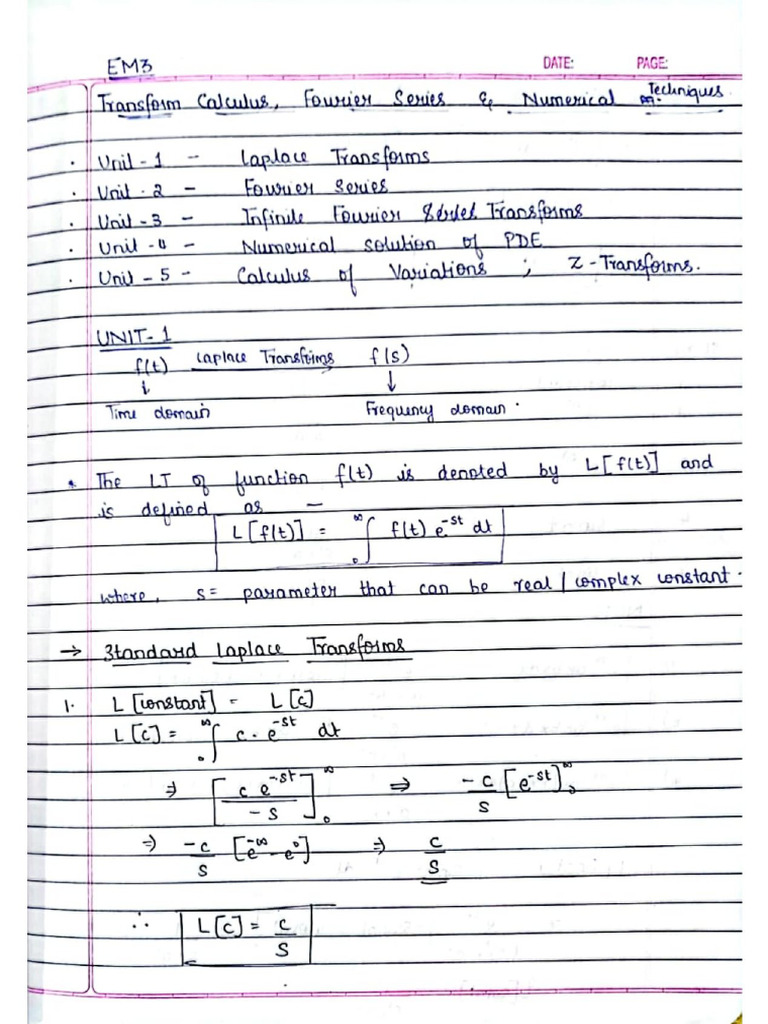 EM3 DATE: PAGE:
Transform Calculus, Fourier Series & Numerical Techniques.
. Unit-1 - Laplace Transforms
. Unit-2 - Fourier Series
. Unit-3 - Infinite Fourier Transforms
. Unit-4 - Numerical solution of PDE
. Unit-5 - Calculus of Variations ; Z-Transforms.
UNIT-1
f(t) Laplace Transforms f(s)
↓ ↓
Time domain Frequency domain.
• The LT of function f(t) is denoted by L[f(t)] and
is defined as -
L[f(t)] = ∞∫0 f(t) e^-st dt
where, s= parameter that can be real / complex constant.
→ Standard Laplace Transforms
1. L [constant] = L[c]
L[c] = ∞∫0 c. e^-st dt
⇒ [c e^-st / -s]0^∞ ⇒ -c/s [e^-st]0^∞
⇒ -c/s [e^-∞ - e^0] ⇒ c/s
∴ L[c] = c/s